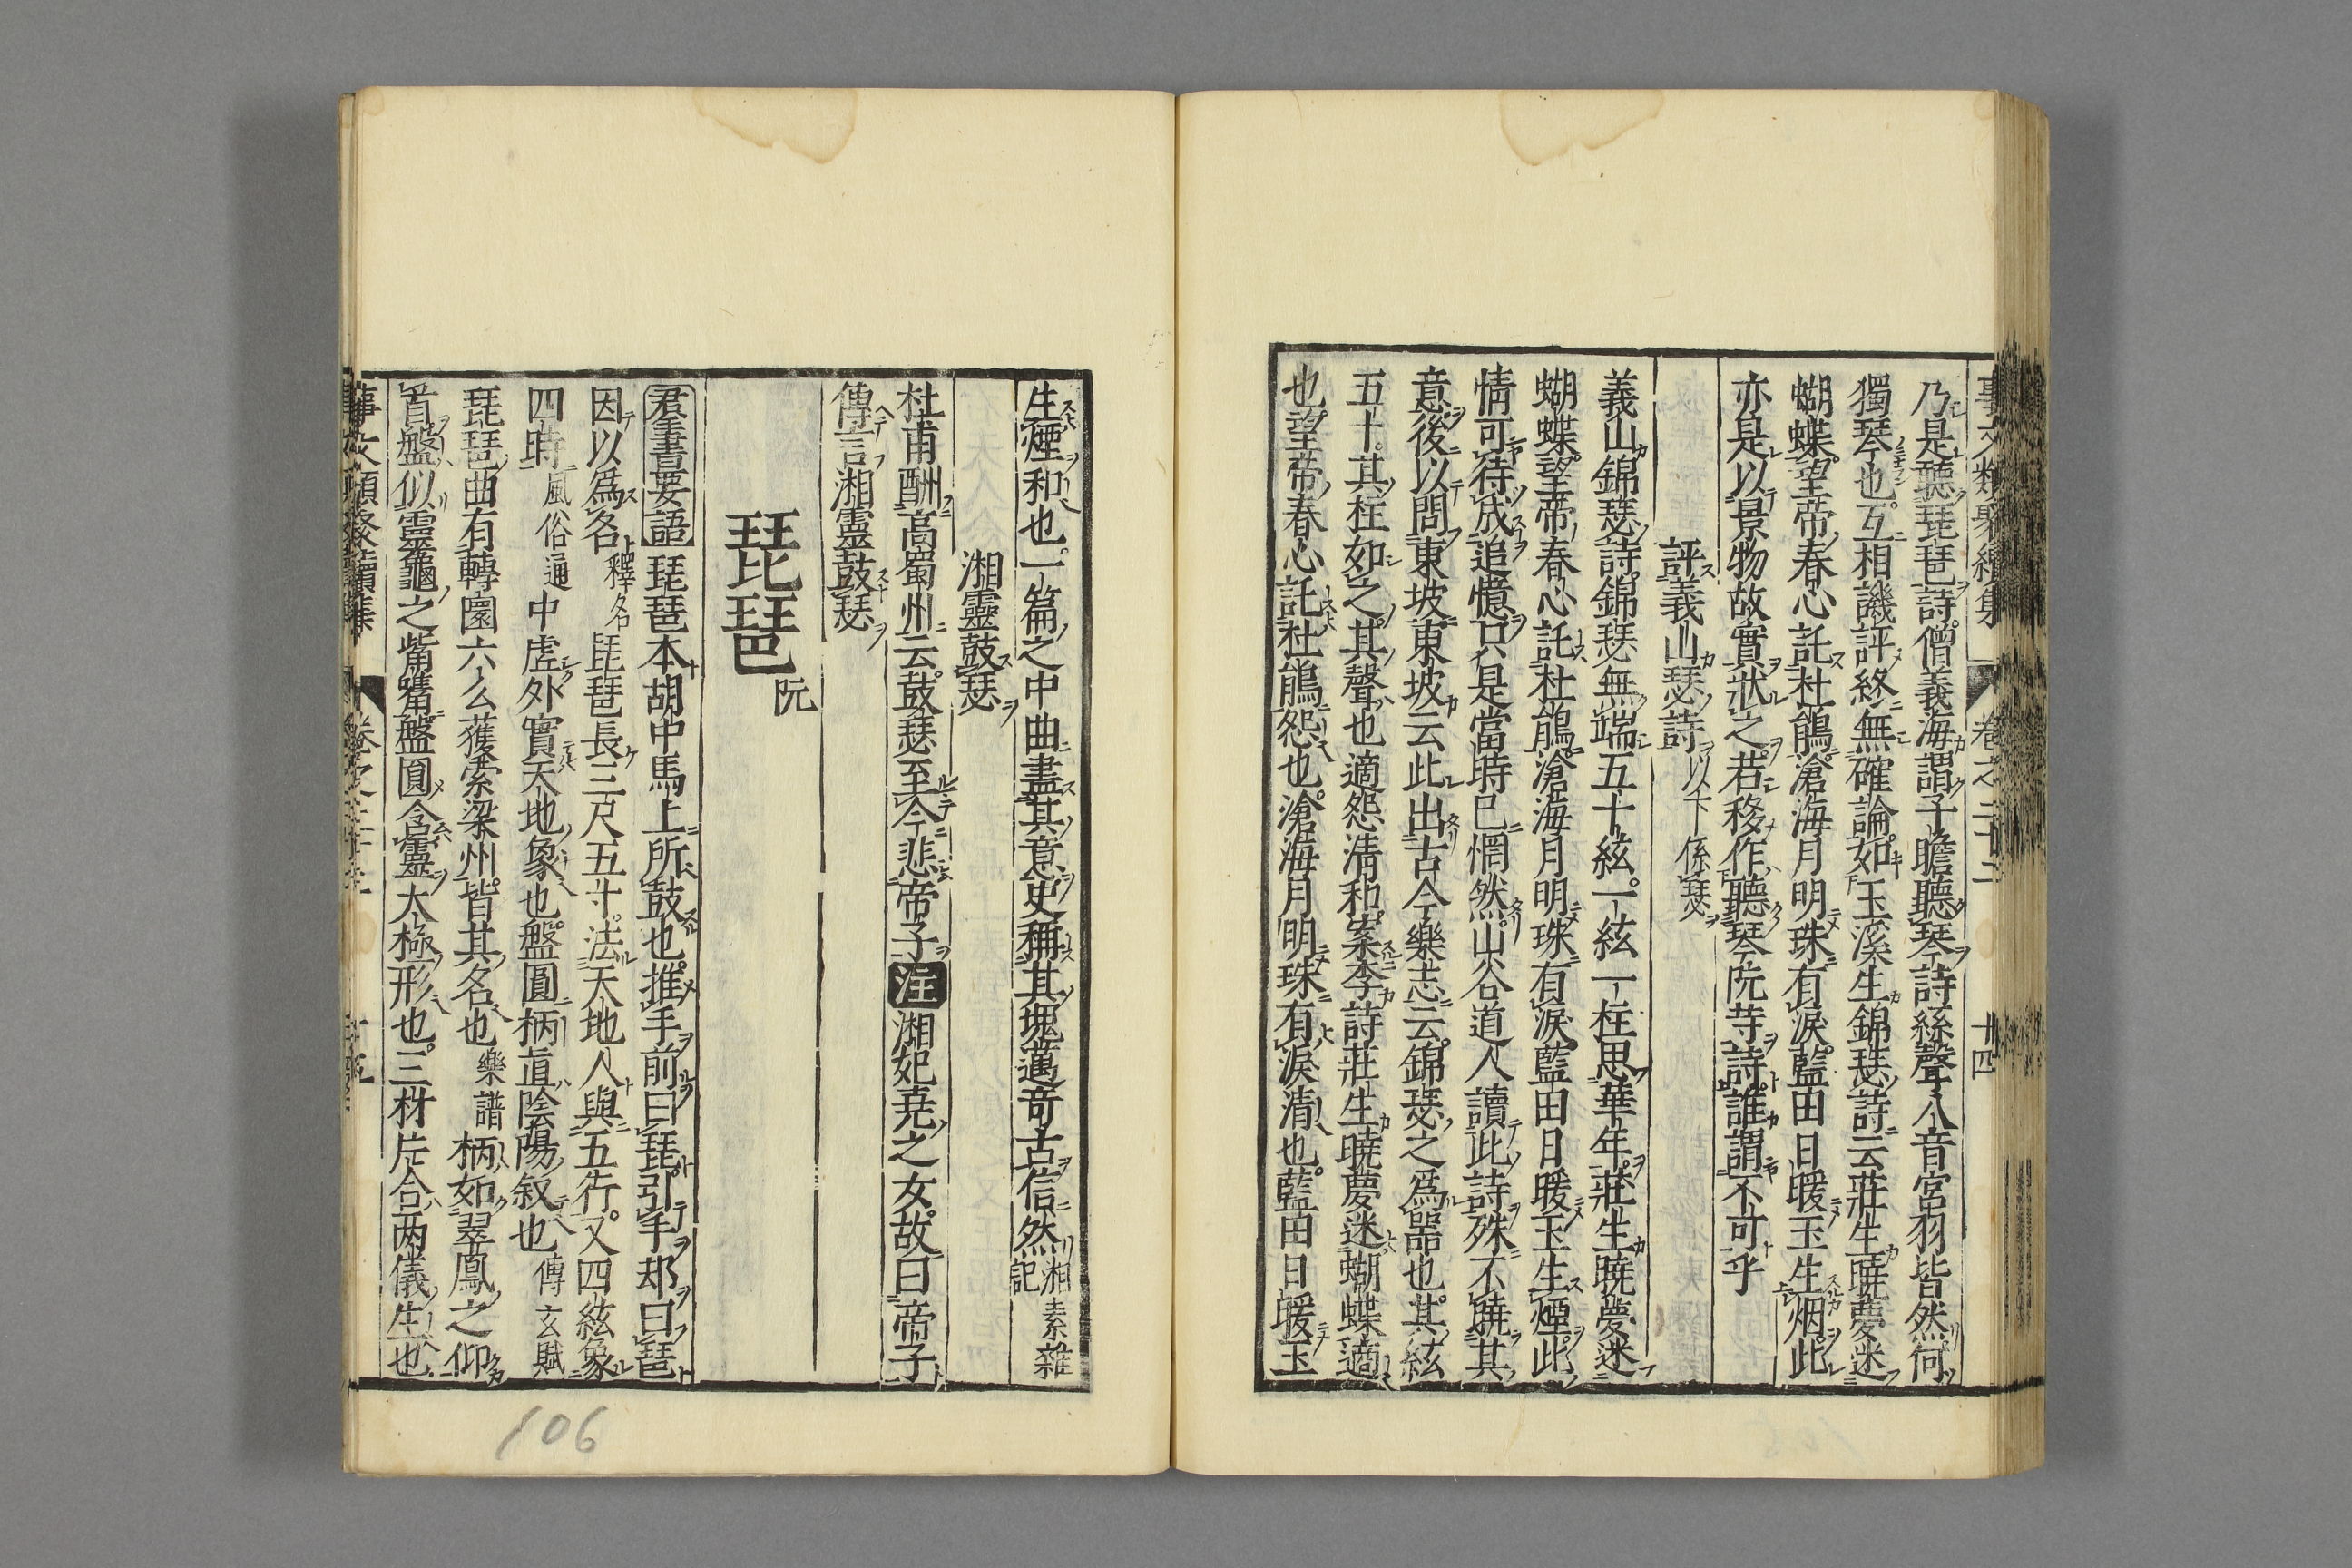 事文類聚續集 卷之二十二 十四
乃是聽琵琶詩僧義海謂子瞻聽琴詩絲聲八音宮羽皆然何
獨琴也互相譏評終無確論如玉溪生錦瑟詩云莊生曉夢迷
蝴蝶望帝春心託杜鵑滄海月明珠有淚藍田日暖玉生烟此
亦是以景物故實狀之若移作聽琴阮等詩誰謂不可乎
評義山瑟詩 以下係瑟
義山錦瑟詩錦瑟無端五十絃一絃一柱思華年莊生曉夢迷
蝴蝶望帝春心託杜鵑滄海月明珠有淚藍田日暖玉生煙此
情可待成追憶只是當時已惘然山谷道人讀此詩殊不曉其
意後以問東坡東坡云此出古今樂志云錦瑟之爲器也其絃
五十其柱如之其聲也適怨清和案李詩莊生曉夢迷蝴蝶適
也望帝春心託杜鵑怨也滄海月明珠有淚清也藍田日暖玉
生煙和也一篇之中曲盡其意史稱其瑰邁奇古信然 湘素雜記
湘靈鼓瑟
杜甫酬高蜀州云鼓瑟至今悲帝子 注 湘妃堯之女故曰帝子
傳言湘靈鼓瑟
琵琶 阮
群書要語 琵琶本胡中馬上所鼓也推手前曰琵引手却曰琶
因以爲名 釋名 琵琶長三尺五寸法天地人與五行又四絃象
四時 風俗通 中虛外實天地象也盤圓柄直陰陽叙也 傳玄賦
琵琶曲有轉圜六么獲索梁州皆其名也 樂譜 柄如翠鳳之仰
首盤似靈龜之觜嘴盤圓含靈太極形也三材片合两儀生也
事文類聚續集 卷之二十二